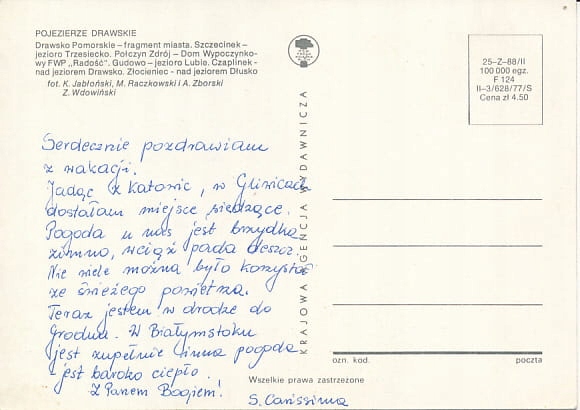 POJEZIERZE DRAWSKIE
Drawsko Pomorskie – fragment miasta. Szczecinek –
jezioro Trzesiecko. Połczyn Zdrój – Dom Wypoczynko-
wy FWP „Radość”. Gudowo – jezioro Lubie. Czaplinek –
nad jeziorem Drawsko. Złocieniec - nad jeziorem Dłusko
fot. K. Jabłoński, M. Raczkowski i A. Zborski
Z. Wdowiński
25-Z-88/II
100 000 egz.
F 124
II-3/628/77/S
Cena zł 4.50
KRAJOWA AGENCJA WYDAWNICZA
Serdecznie pozdrawiam
z wakacji.
Jadąc z Katowic, w Gliwicach
dostałam miejsce siedzące.
Pogoda u nas jest brzydka
zimno, wciąż pada deszcz.
Nie wiele można było korzystać
ze świeżego powietrza.
Teraz jestem w drodze do
Grodna. W Białymstoku
jest zupełnie inna pogoda
- jest bardzo ciepło.
Z Panem Bogiem!
S. Carissima
ozn. kod.
poczta
Wszelkie prawa zastrzeżone